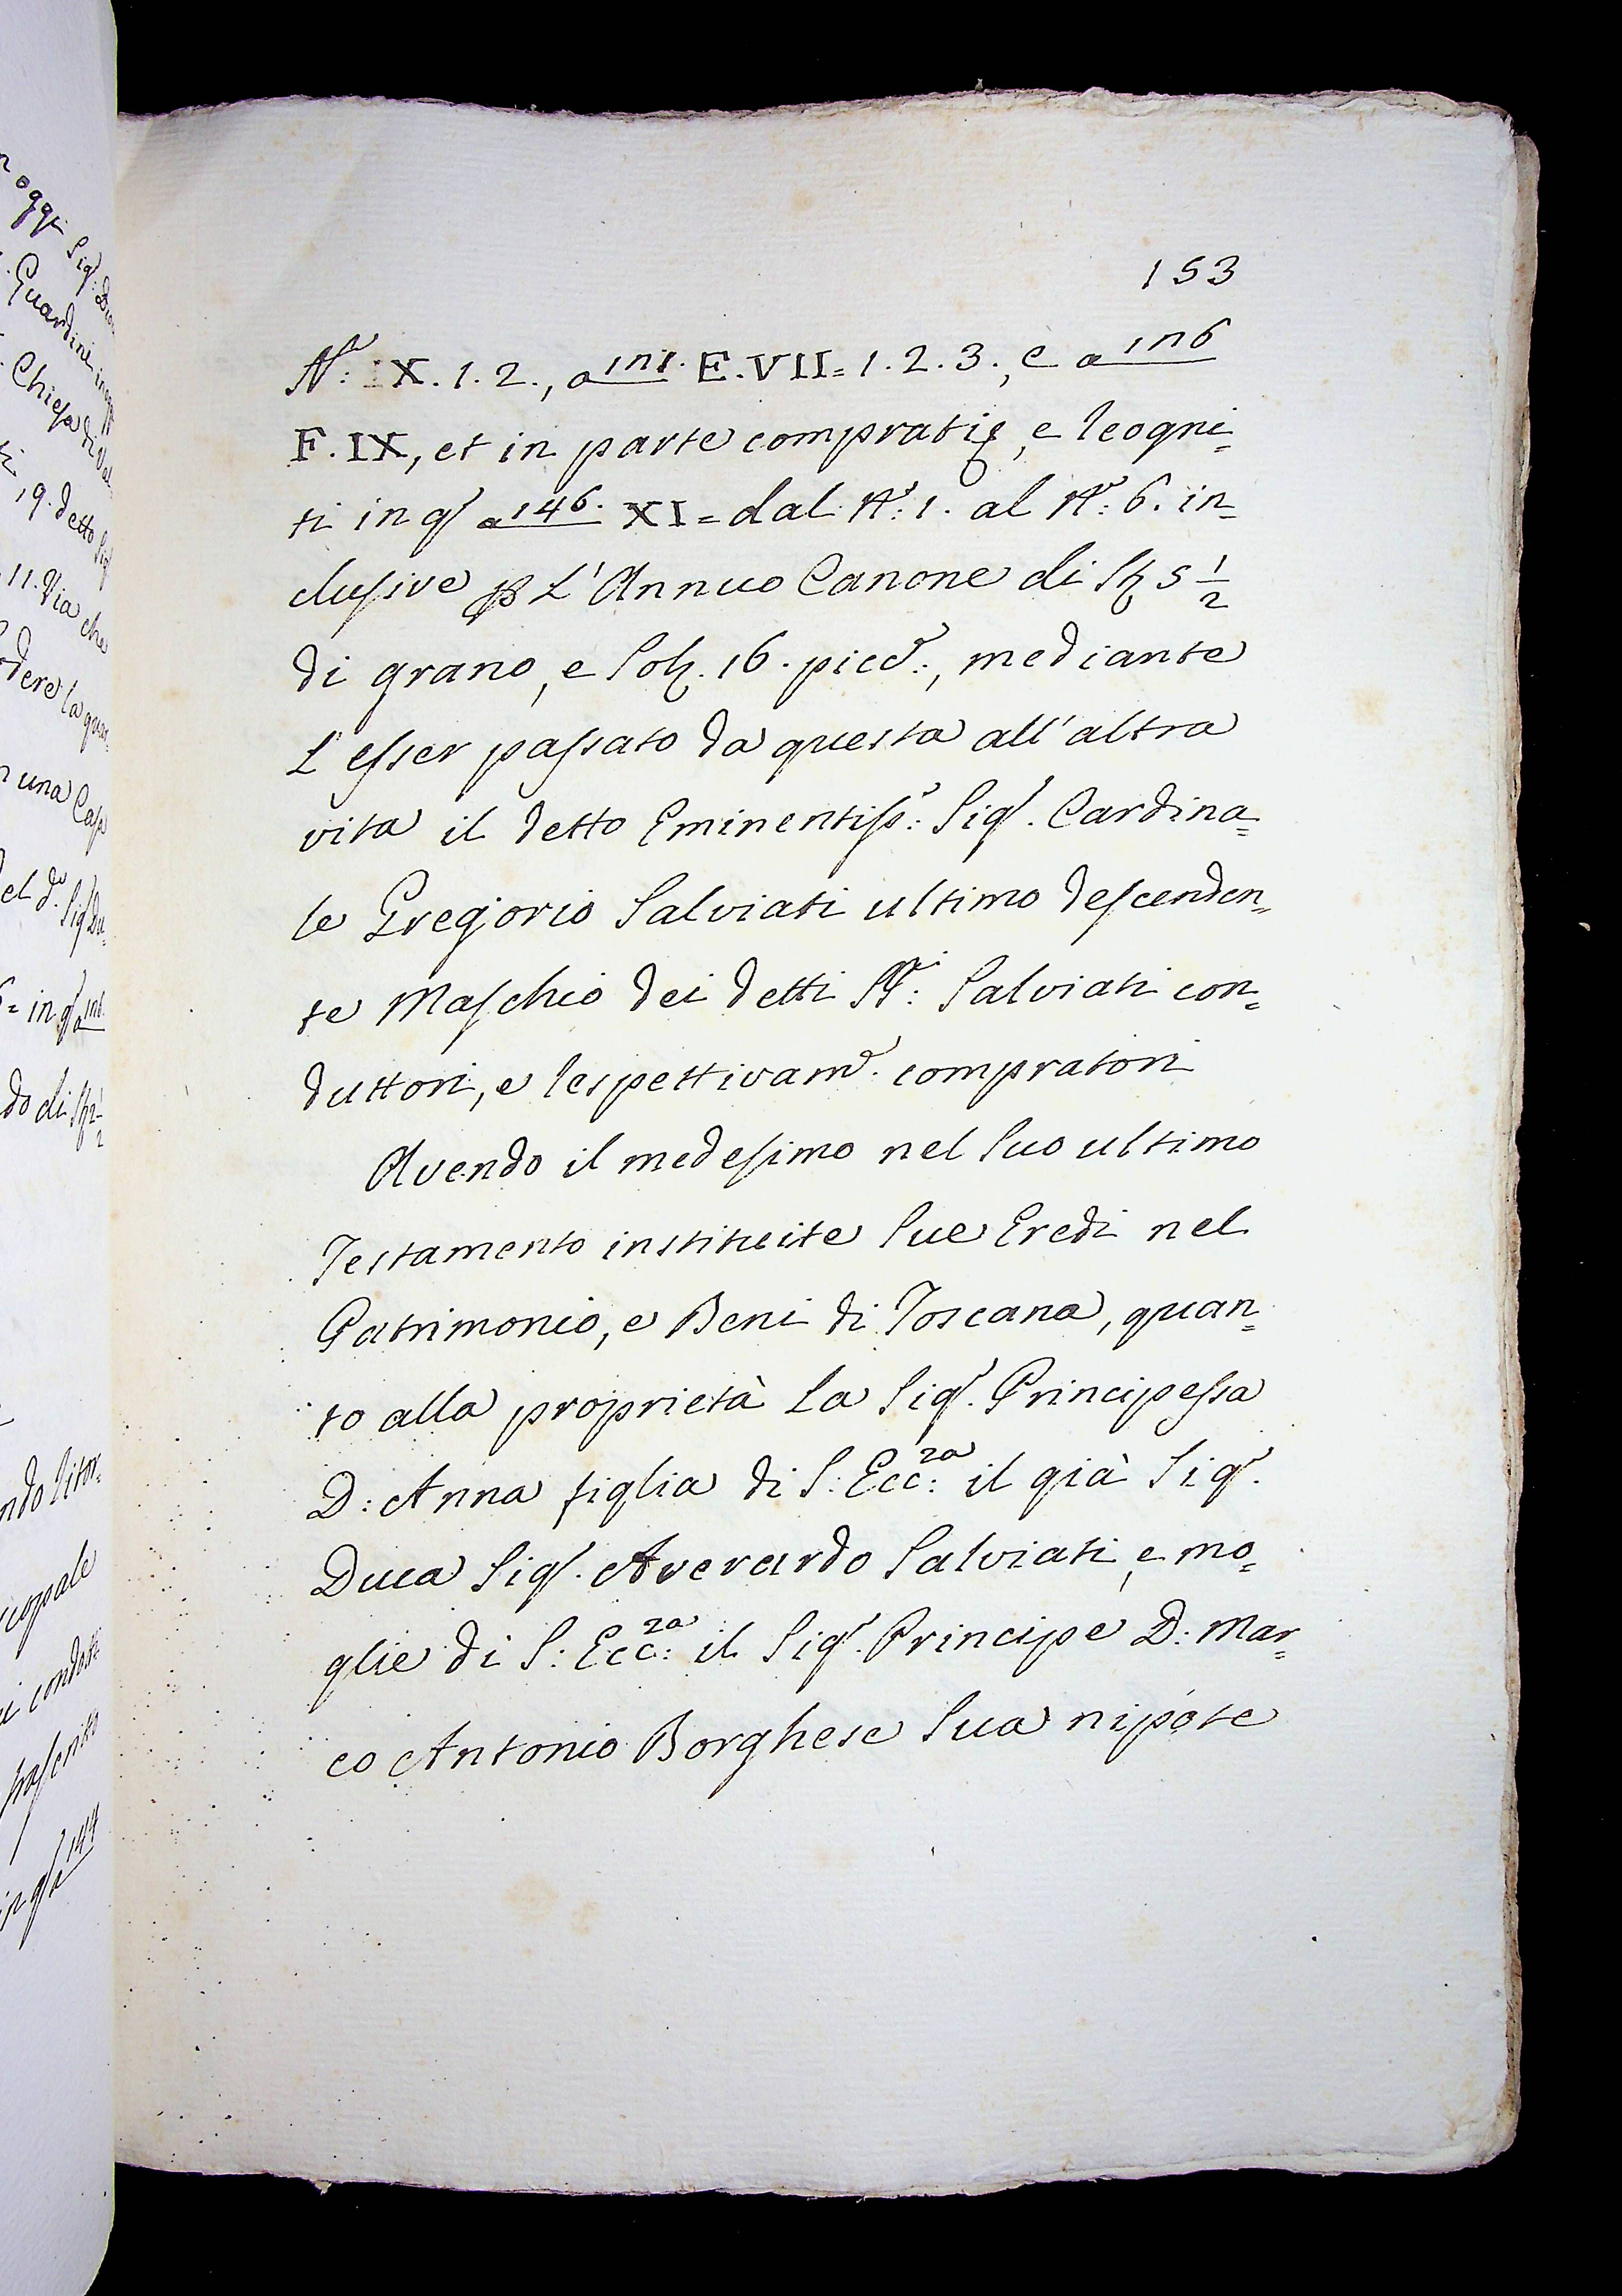 153
N.º IX. 1. 2., a 151. E. VII= 1. 2. 3., e a 156
F. IX, et in parte comprati, e Leogni=
ti in qs a 146. XI= dal N.º 1. al N.º 6. in=
clusive p L'Annuo Canone di Sta 5 1/2
di grano, e Sol. 16. picc:, mediante
L'esser passato da questa all'altra
vita il detto Eminentiss: Sig.r Cardina=
le Gregorio Salviati ultimo descenden=
te Maschio dei detti SS:ri Salviati con=
duttori, e Respettivam.e compratori
Avendo il medesimo nel Suo ultimo
Testamento instituite Sue Eredi nel
Patrimonio, e Beni di Toscana, quan=
to alla proprietà La Sig.ra Principessa
D: Anna figlia di S: Ecc:za il già Sig.r
Duca Sig.r Averardo Salviati, e mo=
glie di S: Ecc:za il Sig.r Principe D: Mar=
co Antonio Borghese Sua nipote
n oggi Sig.
Guardini in
Chiesa di Val
19. detto Sig
11. Via che
dere la quar
una Cas
el d.º Sig Du=
= in qs a
do di Sta 2 1/2
ndo Ritor=
scopale
condot
trascritto
in qs a 144